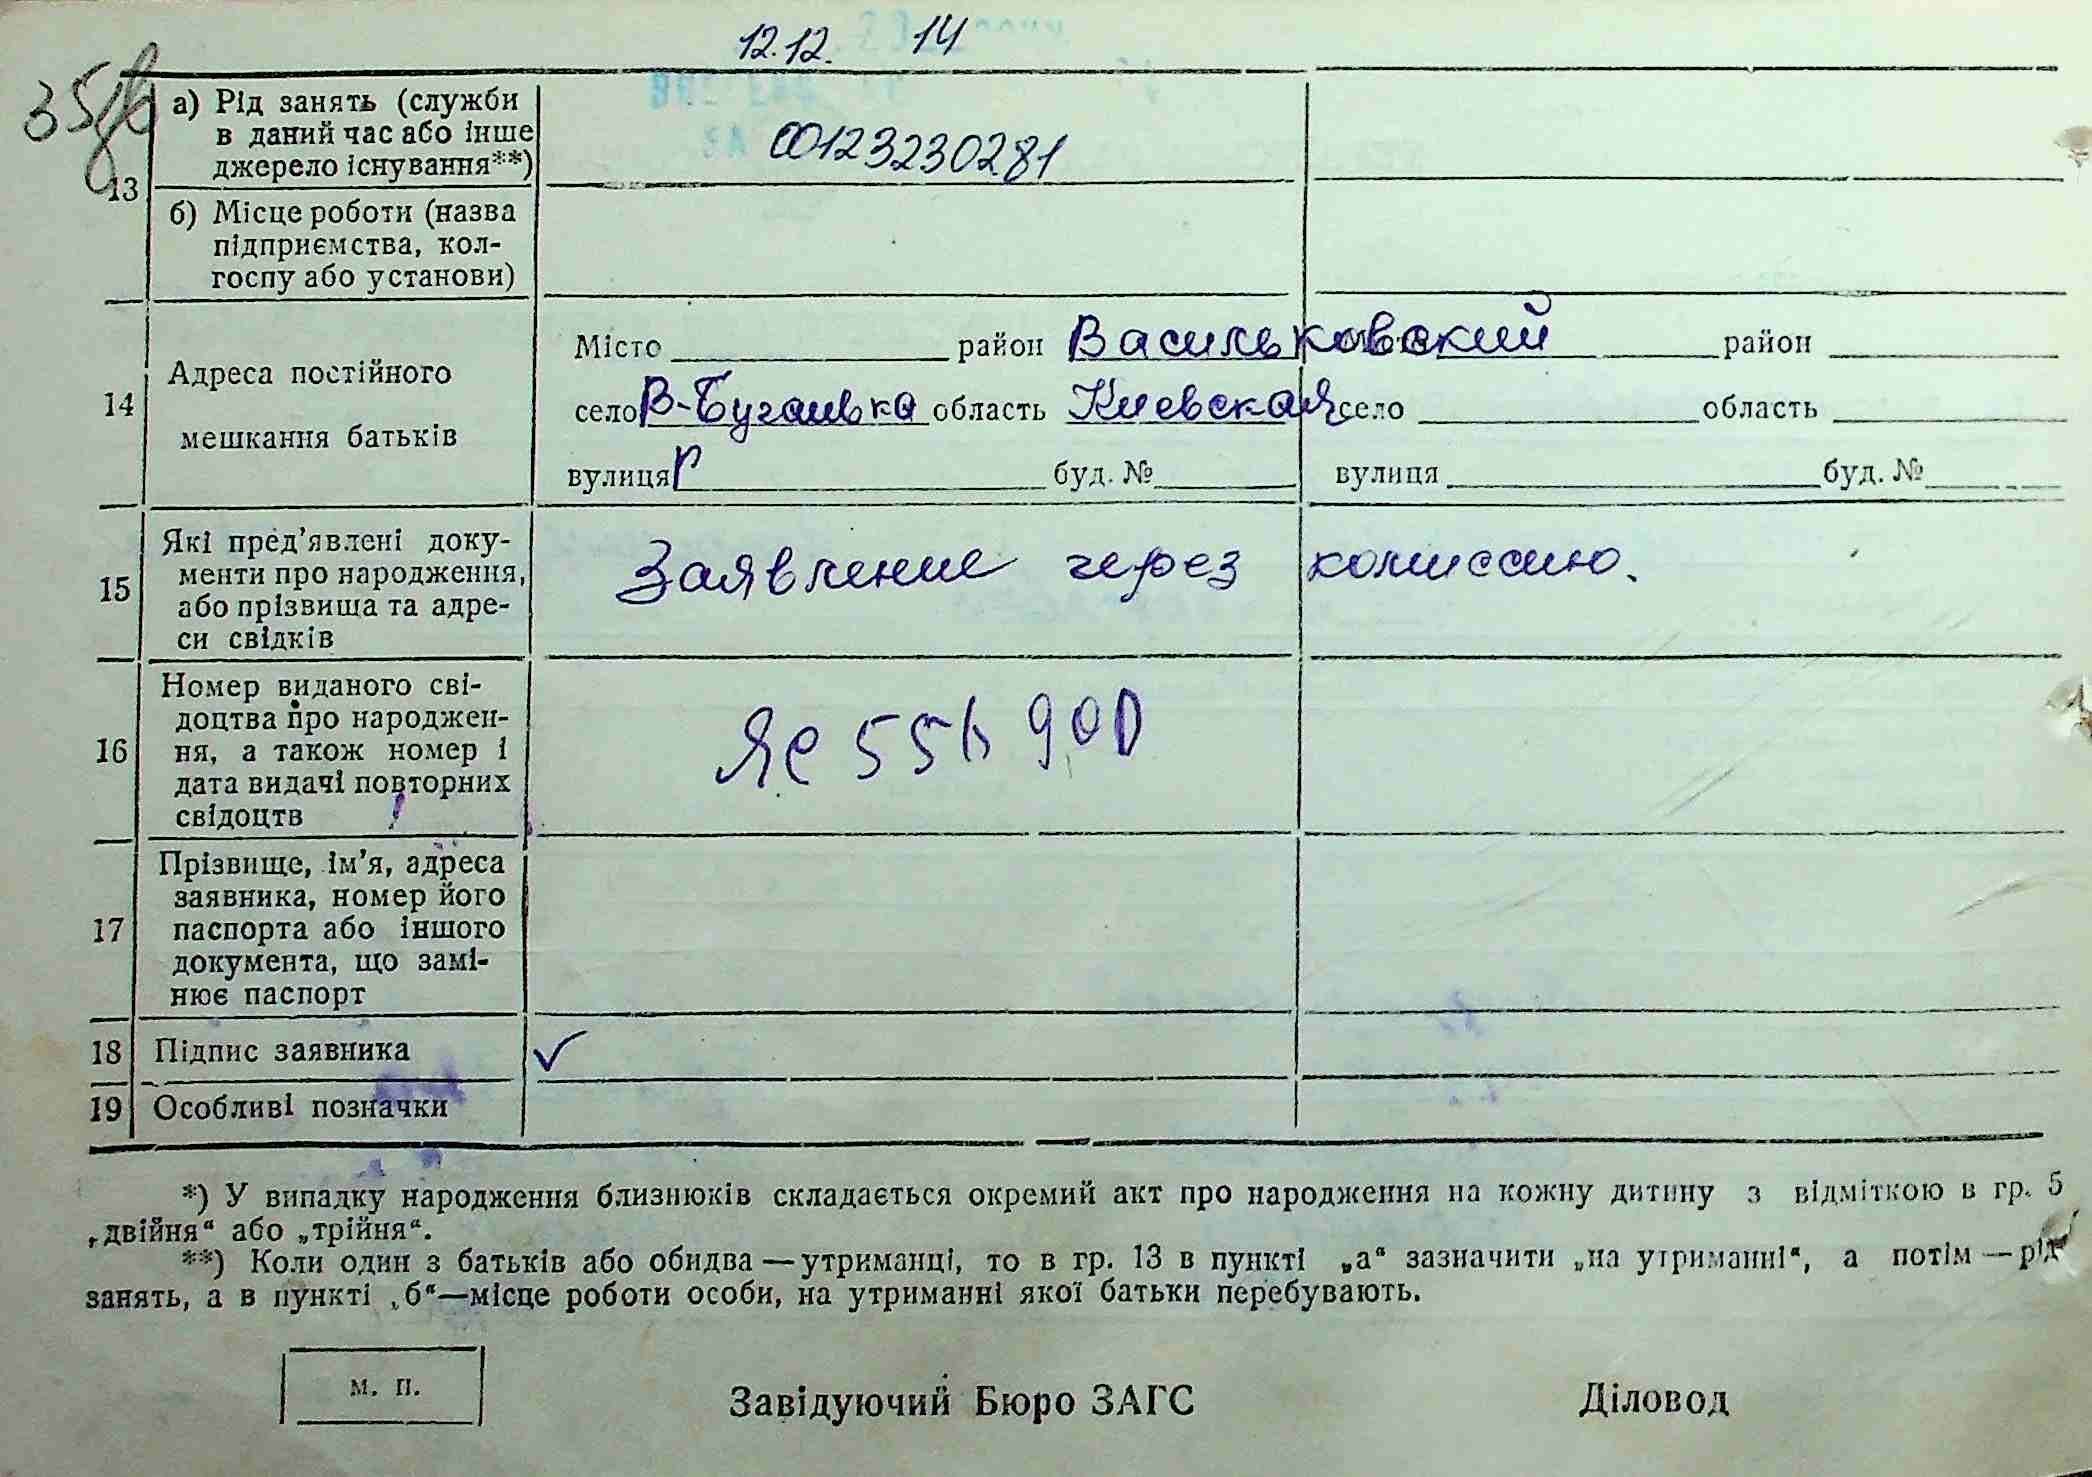 12.12. 14
а) Рід занять (служби
в даний час або інше
джерело існування**)
00123230281
13
б) Місце роботи (назва
підприємства, кол-
госпу або установи)
14
Адреса постійного
мешкання батьків
Місто район Васильковский район
село В-Бугаивка область Киевская село область
вулиця буд. № вулиця буд. №
15
Які пред'явлені доку-
менти про народження,
або прізвища та адре-
си свідків
Заявление через комиссию.
16
Номер виданого сві-
доцтва про народжен-
ня, а також номер і
дата видачі повторних
свідоцтв
17
Прізвище, ім'я, адреса
заявника, номер його
паспорта або іншого
документа, що замі-
нює паспорт
18 Підпис заявника
19 Особливі позначки
*) У випадку народження близнюків складається окремий акт про народження на кожну дитину з відміткою в гр. 5
„двійня“ або „трійня“.
**) Коли один з батьків або обидва—утриманці, то в гр. 13 в пункті „а“ зазначити „на утриманні“, а потім—рід
занять, а в пункті „б“—місце роботи особи, на утриманні якої батьки перебувають.
м. п.
Завідуючий Бюро ЗАГС Діловод